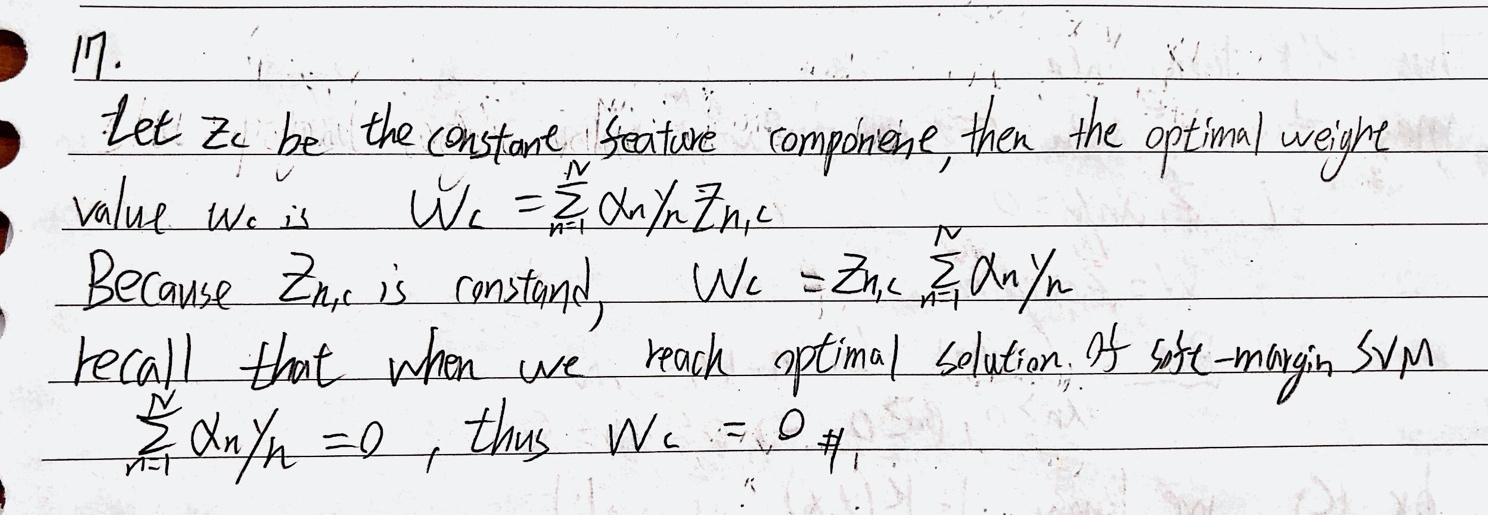 17.
Let Zc be the constant feature component, then the optimal weight
value Wc is Wc = \sum_{n=1}^{N} αn yn Zn,c
Because Zn,c is constand, Wc = Zn,c \sum_{n=1}^{N} αn yn
recall that when we reach optimal solution of soft-margin SVM
\sum_{n=1}^{N} αn yn = 0 , thus Wc = 0 #